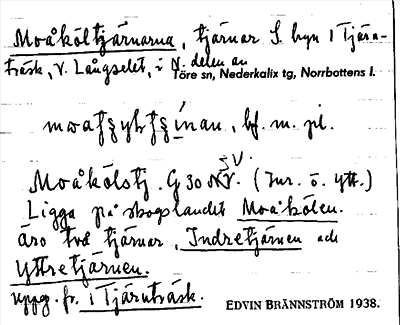 Moåköltjärnarna, tjärnar S. byn i Tjärn-
träsk, V. Långselet, i N. delen av
Töre sn, Nederkalix tg, Norrbottens l.
bf. m. pl.
SV.
Moåkölstj. G 30 NV. (Inr. o. ytt.)
Ligga på skogslandet Moåkölen.
äro två tjärnar, Indretjärnen och
Yttretjärnen.
uppg. fr. i Tjärnträsk.
EDVIN BRÄNNSTRÖM 1938.